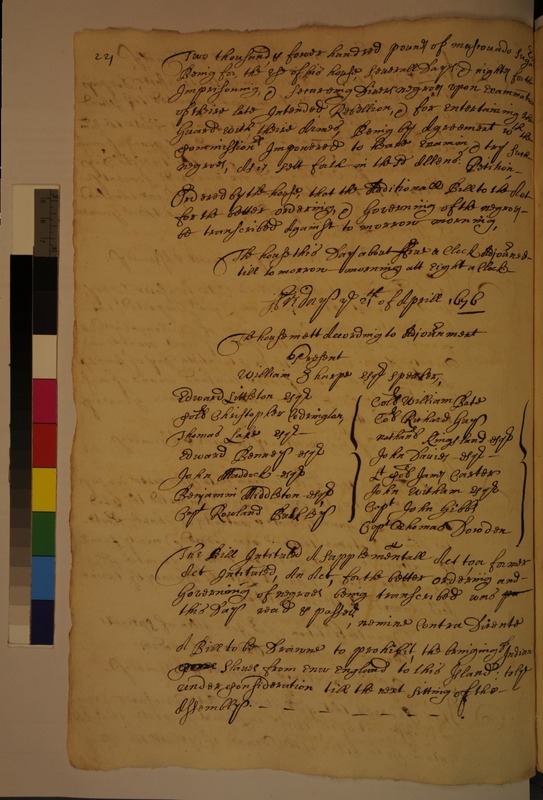 221
Two thousand & fower hundred pounds of muscovado Sugar
Being for the use of his house Severall Days & nights for the
Imprisoning, & secureing Divers negroes upon Examinat
of theire late Intended Rebellion, & for entertaining the
Guard with theire Armes, Being by Agreement with the
Commission Impowered to heare Examon & try such
negroes, as is sett forth in the sd Allens Petition
Ordered by the house, that the Additionall Bill to the Act
for the better ordering, & Governing of the negroes
be transcribed Against to morrow morning,
The house this Day about ffour a Clock Adjourned
till to morrow morning att Eight a Clock
ffriday ye of Aprill 1676
The house mett According to Adjournment
Present
William Sharpe esqr Speaker,
Edward Littleton esqr
Colo Christopher Codrington,
Thomas Lake esqr
Edward Benney esqr
John Maddock esqr
Benjamin Middleton esqr
Capt Rowland Bulkley
Colo William Bate
Colo Richard Guy
nathan Kingsland esqr
John Davies esqr
Lt Colo James Carter
John Witham esqr
Capt John Gibbs
Capt Thomas Dowden
The Bill Intituled A Supplementall Act to a former
Act Intituled, An Act, for the better ordering and
Governing of negroes being transcribed was
this Day read & passed, nemine Contra Dicente
A Bill to be Drawne to prohibit, the bringing of Indian
Slaves from new England to this Island: to be
under Consideration till the next sitting of the
Assembly